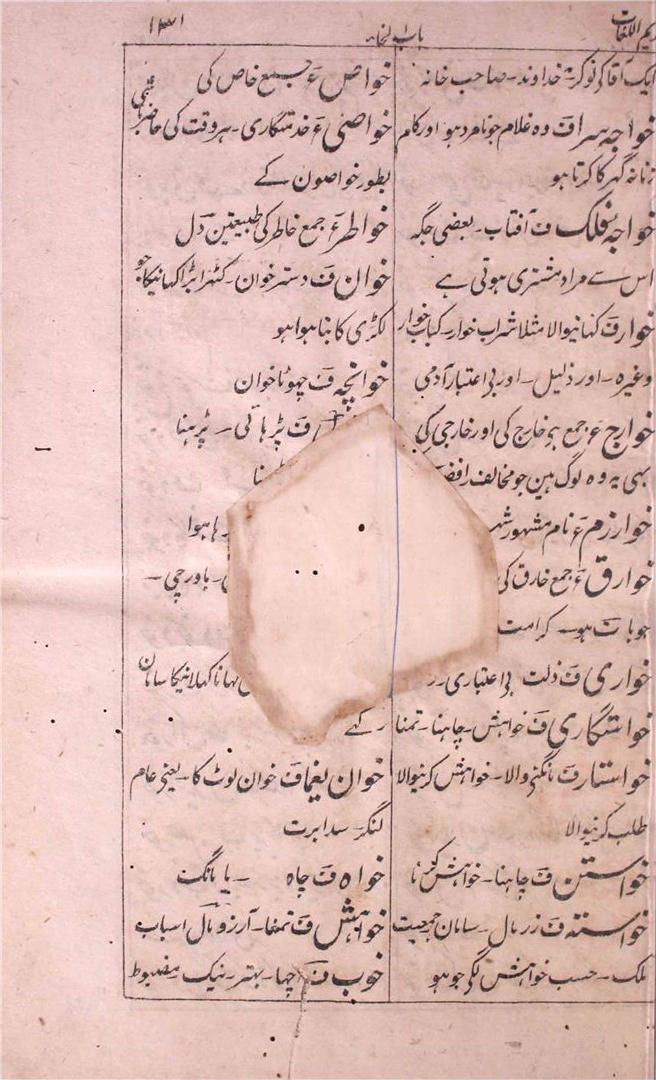 ۱۳۱
باب الخاء
کریم اللغات
ایک آقا کی نوکر۔ خداوند۔ صاحب خانہ
خواجہ سرا ف وہ غلام جو نامرد ہو اور کام
زنانہ گہر کا کرتا ہو
خواجہ فلک ف آفتاب۔ بعضی جگہ
اس سے مراد مشتری ہوتی ہے
خوار ف کہانیوالا مثلا شراب خوار۔ کباب خوار
وغیرہ۔ اور ذلیل۔ اور بی اعتبار آدمی
خوارج ع جمع ہی خارج کی اور خارجی کی
بہی یہ وہ لوگ ہین جو مخالف رافضی
خوارزم ع نام مشہور
خوارق ع جمع خارق کی
جو بات ہو۔ کرامت
خواری ف ذلت بی اعتباری
خواستگاری ف خواہش۔ چاہنا۔ تمنا
خواستار ف مانگنے والا۔ خواہش کرنیوالا
طلب کرنیوالا
خواستن ف چاہنا۔ خواہش کرنا
خواستہ ف زر مال۔ سامان جمعیت
ملک۔ حسب خواہش کی جو ہو
خواص ع جمع خاص کی
خواصی ع خدمتگاری۔ ہر وقت کی حاضر باشی
بطور خواصون کے
خواطر ع جمع خاطر کی طبیعتین دل
خوان ف دسترخوان۔ کٹہرا بڑا کہانیکا جو
لکڑی کا بنا ہوا ہو
خوانچہ ف چہوٹا خوان
ف پڑہائی۔ پڑہنا
ہوا
باورچی۔
کہانا کہلانیکا سامان
رکہے
خوان یغما ف خوان لوٹ کا۔ یعنی عام
لنگر۔ سدابرت
خواہ ف چاہ ۔ یا مانگ
خواہش ف تمنا۔ آرزو مال اسباب
خوب ف اچہا۔ بہتر۔ نیک۔ مضبوط